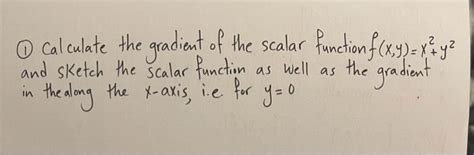 ① Calculate the gradient of the scalar function f(x,y)=x²+y²
and sketch the scalar function as well as the gradient
in the along the x-axis, i.e for y=0